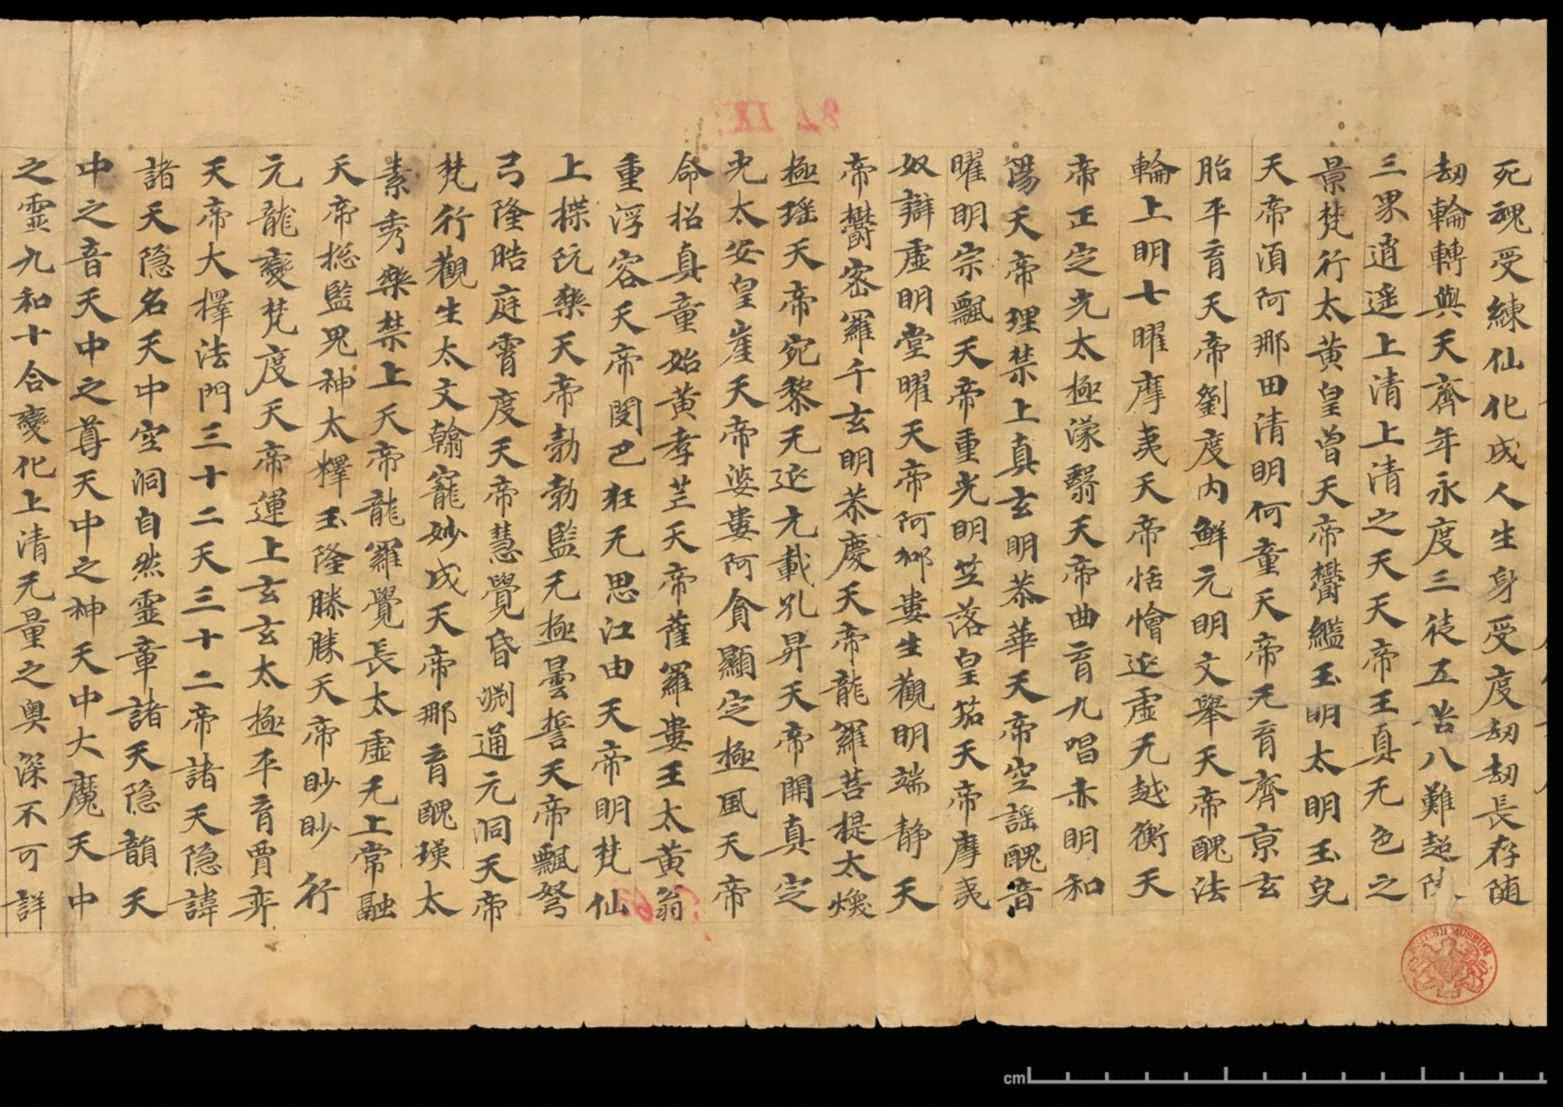 死魂受練仙化成人生身受度劫劫長存随
劫輪轉與天齊年永度三徒五苦八難超
三界逍遥上清上清之天天帝玉真无色之
景梵行太黄皇曾天帝欝繿玉明太明玉皃
天帝湏阿那田清明何童天帝元育齊京玄
胎平育天帝劉度内鮮元明文舉天帝醜法
輪上明七曜摩夷天帝恬憎延虚无越衡天
帝正定光太極濛翳天帝曲育九唱赤明和
陽天帝理禁上真玄明恭華天帝空謡醜音
曜明宗飄天帝重光明笁落皇笳天帝摩夷
奴辯虚明堂曜天帝阿䣊婁生觀明端静天
帝欝密羅千玄明恭慶天帝龍羅菩提太煥
極瑶天帝宛黎无延元載孔昇天帝開真定
光太安皇崖天帝婆婁阿貪顯定極風天帝
命招真童始黄孝芒天帝薩羅婁王太黄翁
重浮容天帝閔巴狂无思江由天帝明梵仙
上揲阮樂天帝勃勃監无極曇誓天帝飄弩
弓隆晧庭霄度天帝慧覺昏渊通元洞天帝
梵行觀生太文翰寵妙成天帝那育醜瑛太
素秀樂禁上天帝龍羅覺長太虚无上常融
天帝揔監鬼神太釋玉隆滕勝天帝眇眇行
元龍變梵度天帝運上玄玄太極平育賈弈
天帝大擇法門三十二天三十二帝諸天隐諱
諸天隐名天中空洞自然霊章諸天隐韻天
中之音天中之尊天中之神天中大魔天中
之霊九和十合變化上清无量之奥深不可詳
78 IX.
BRITISH MUSEUM
cm